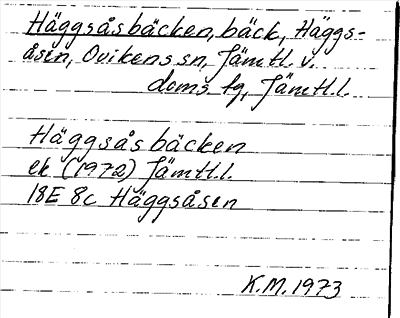 Häggsåsbäcken, bäck, Häggs-
åsen, Ovikens sn, Jämtl. v.
doms. tg, Jämtl. l.
Häggsåsbäcken
ek (1972) Jämtl. l.
18E 8c Häggsåsen
K.M. 1973